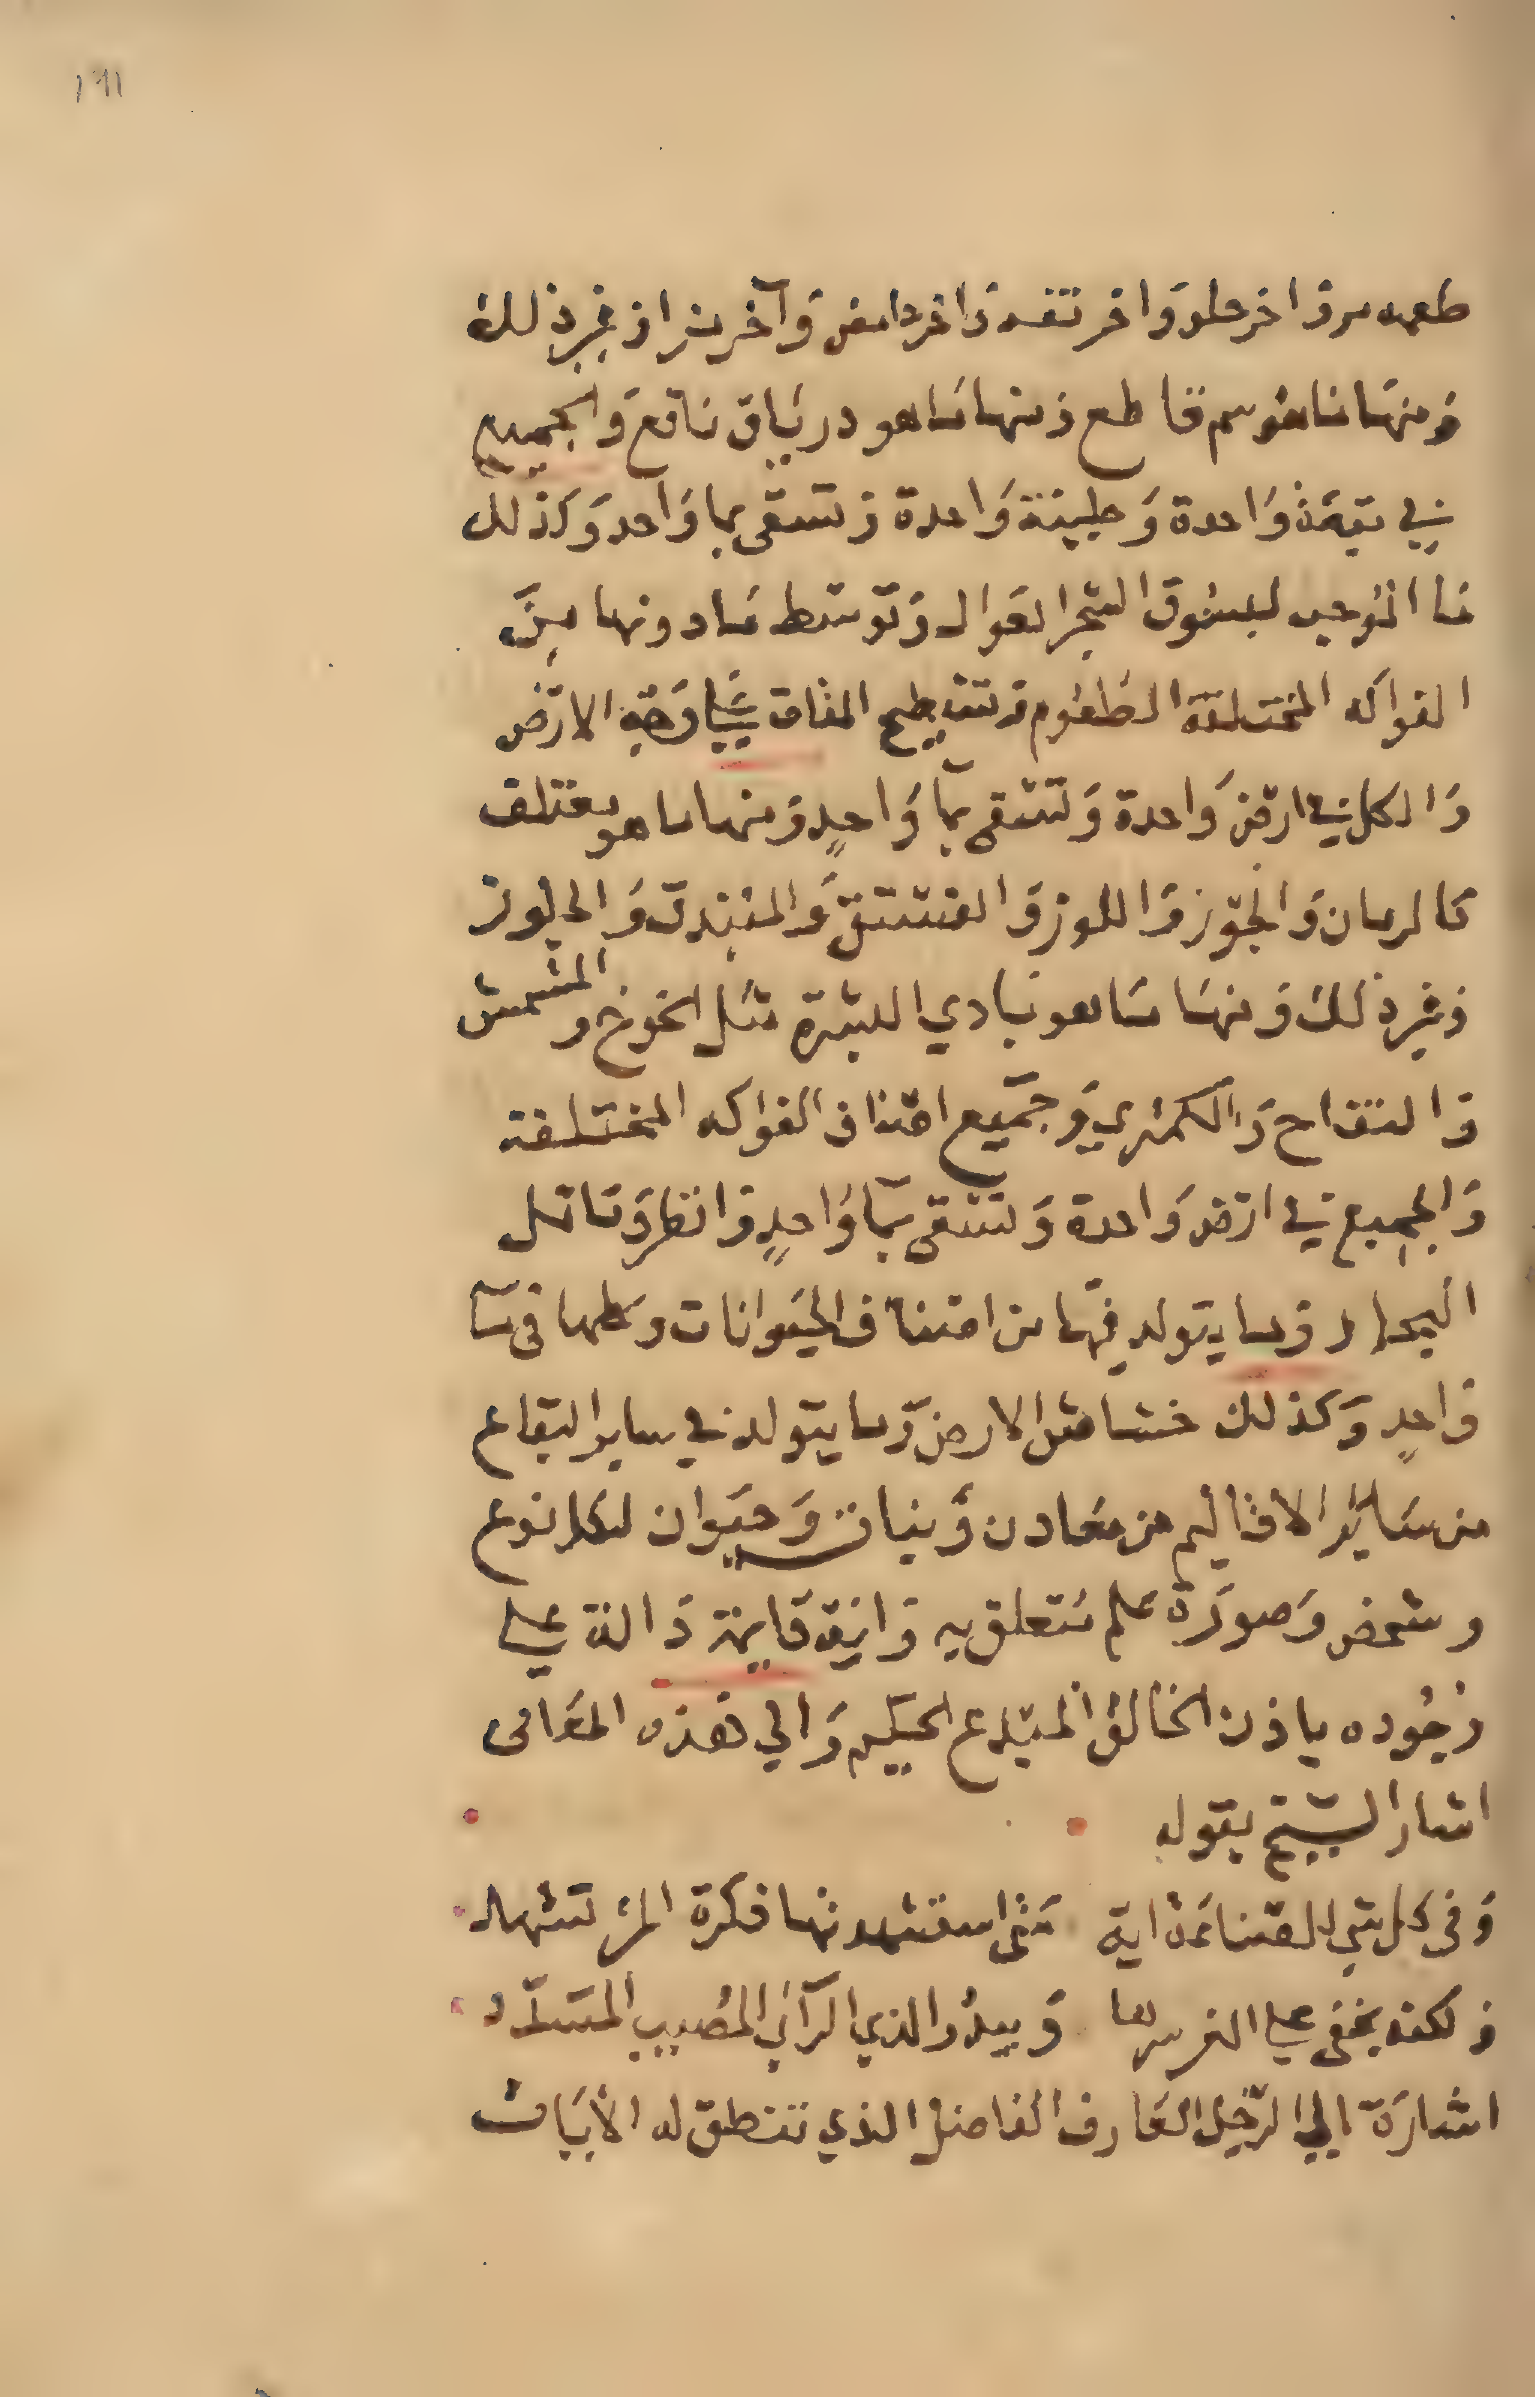 ١٩١
طعمه مر واخر حلو واخر تفه واخر حامض وآخر مز الي غير ذلك
ومنها ما هو سم قاطع ومنها ما هو درياق نافع والجميع
في بقعة واحدة وطينة واحدة وتسقى بما واحد وكذلك
ما الموجب لبسوق الشجر العوال وتوسط ما دونها من
الفواكه المختلفة الطعوم وتسطيح علي وجه الارض
والكل في ارض واحدة وتسقى بمآ واحدٍ ومنها ما هو مغتلف
كالرمان والجوز واللوز والفستق والبندق والجلوز
وغير ذلك ومنها ما هو بادي البشرة مثل الخوخ والمشمش
والتفاح والكمثري وجميع اصناف الفواكه المختلفة
والجميع في ارض واحدة وتسقى بمآ واحدٍ وانظر وتامل
البحار وما يتولد فيها من اصناف الحيوانات وكلها في مآ
واحدٍ وكذلك خشاش الارض وما يتولد في ساير البقاع
من سائر الاقاليم من معادن ونبات وحيوان لكل نوع
وشخص وصورة علم متعلق به واية قايمة دالة علي
وجوده باذن الخالق المبدع الحكيم والي هذه المعاني
اشار الشيخ بقوله
وفي كل شي للصناعة اية متى استشهدتها فكرة المرء تشهد
ولكنه يخفى علي الغر سرها ويبدو لذي الرآي المصيب المسدّد
اشارة الي الرجل العارف الفاضل الذي تنطق له الأبيات